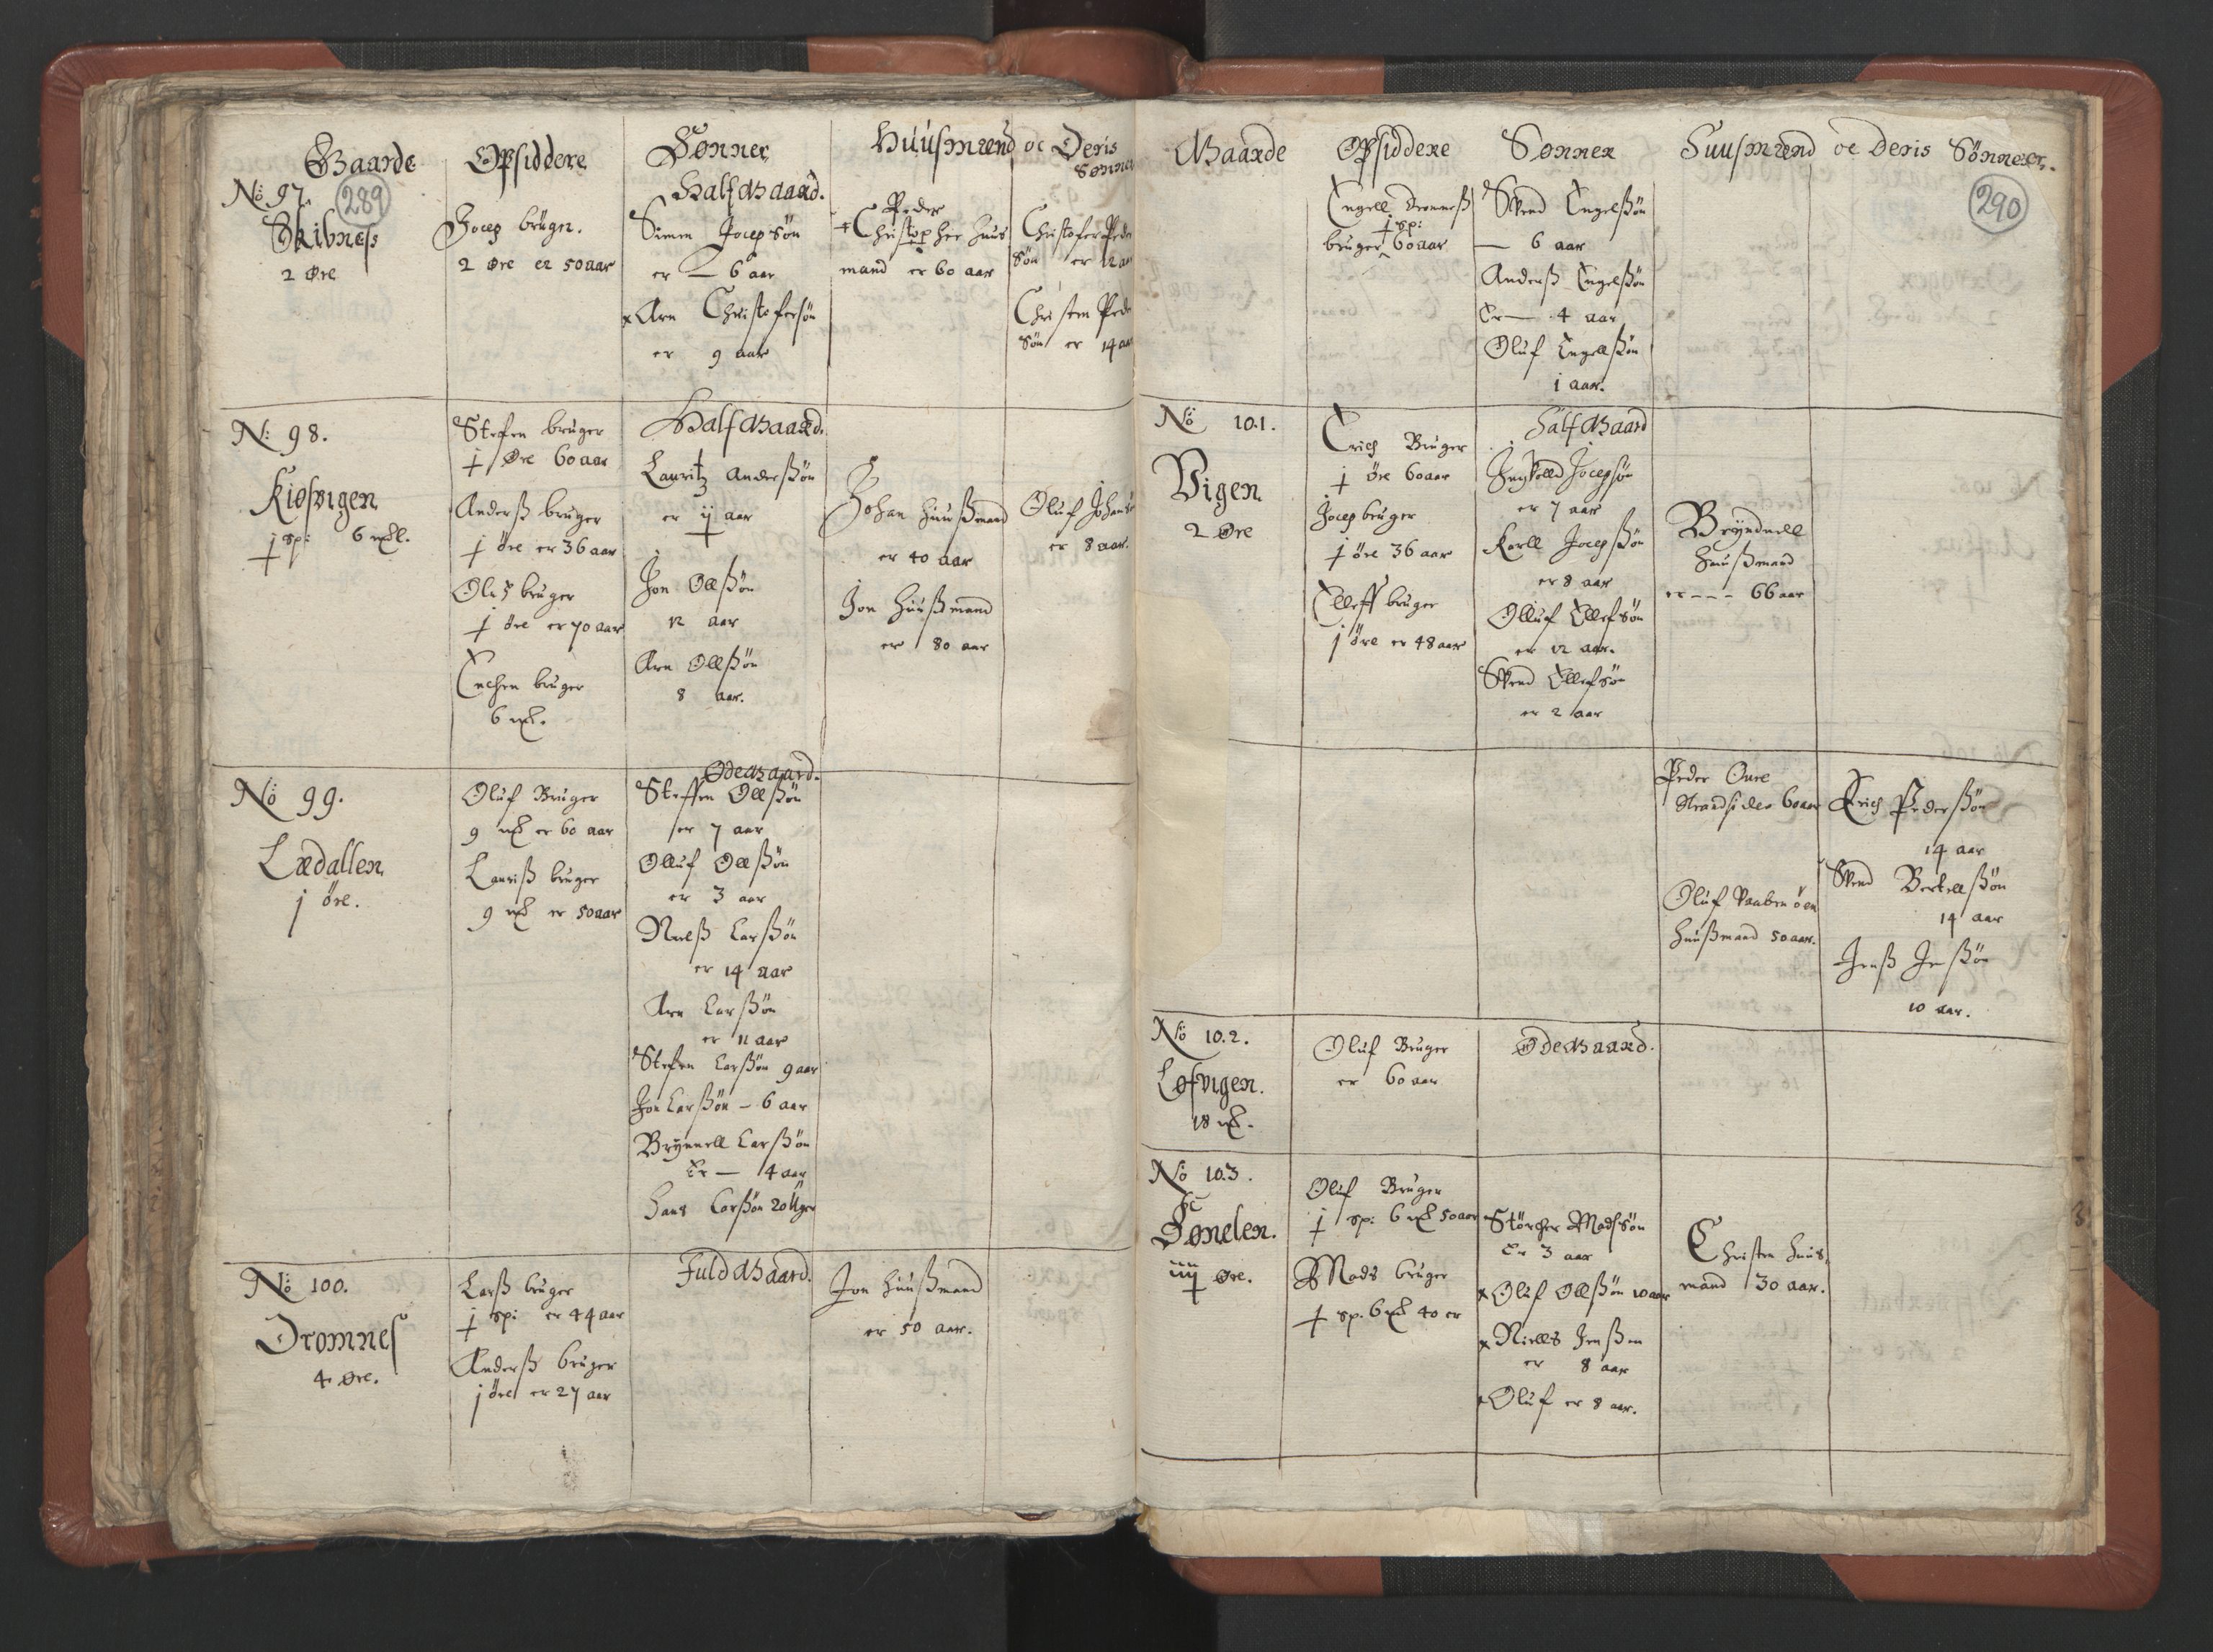 Gaarde Opsiddere Sønner Huusmænd oc Deris Sønner
No 97. 289
Skibness
2 Øre
Jocep bruger.
2 Øre er 50 aar
Half Gaard.
Simen Jocepsøn
er — 6 aar
x Arn Christofersøn
er 9 aar
Peder
+ Christopher Huus
mand er 60 aar
Christofer Peder
søn er 12 aar
Christen Peder
søn er 14 aar
N: 98.
Kiøsvigen
j sp: 6 mkl.
Stefen bruger
j Øre 60 aar
Anderß bruger
j øre er 36 aar
Oluf bruger
j øre er 70 aar
Enchen bruger
6 mkl.
Half Gaard.
Lauritz Anderßøn
er ij aar
Jon Ollßøn
12 aar
Arn Ollßøn
8 aar.
Johan Huußmand
er 40 aar
Jon Huußmand
er 80 aar
Oluf Johans
er 8 aar.
No 99.
Lædallen
j øre.
Oluf Bruger
9 mkl er 60 aar
Lauriß bruger
9 mkl er 50 aar
Øde Gaard.
Steffen Ollßøn
er 7 aar
Olluf Ollßøn
er 3 aar
Nielß Larßøn
er 14 aar
Arn Larßøn
er 11 aar
Stefen Larßøn 9 aar
Jon Larßøn – 6 aar
Brynnell Larßøn
Er — 4 aar
Hans Larßøn 20 Uger
No 100.
Dromnes
4 Øre.
Larß bruger
j sp: er 44 aar
Anderß bruger
j øre er 27 aar
Fuld Gaard.
Jon Huußmand
er 50 aar.
Gaarde Opsiddere Sønner Huusmænd oc Deris Sønner.
290
Engell Dromneß
j sp:
bruger 60 aar
Svend Engelßøn
— 6 aar
Anderß Engelßøn
Er — 4 aar
Oluf Engellßøn
1 aar.
No 101.
Vigen
2 Øre
Erich Bruger
j øre 60 aar
Jocep bruger
j øre 36 aar
Elleff bruger
j øre er 48 aar
Half Gaard
Jocepsøn
er 7 aar
Karll Jocepßøn
er 8 aar
Olluf Ellefsøn
er 12 aar.
Svend Ellefsøn
er 2 aar
Bryndnell
Huußmand
er --- 66 aar
Peder Oure
Strandsider 60 aar
Oluf Vaabenøen
Huußmand 50 aar.
Erich Pederßøn
14 aar
Svend Bertellßøn
14 aar
Jenß Jenßøn
10 aar.
No 102.
Løfvigen.
18 mkl.
Oluf Bruger
er 60 aar
Øde Gaard.
No 103.
Dønelen.
iiij Øre.
Oluf Bruger
j sp: 6 mkl 50 aar
Mads bruger
j sp. 6 mkl 40 er
Størcher Madssøn
Er 3 aar
x Oluf Ollßøn 10 aar
x Niells Jenßen
er 8 aar
x Oluf er 8 aar.
Christen Huus
mand 30 aar.